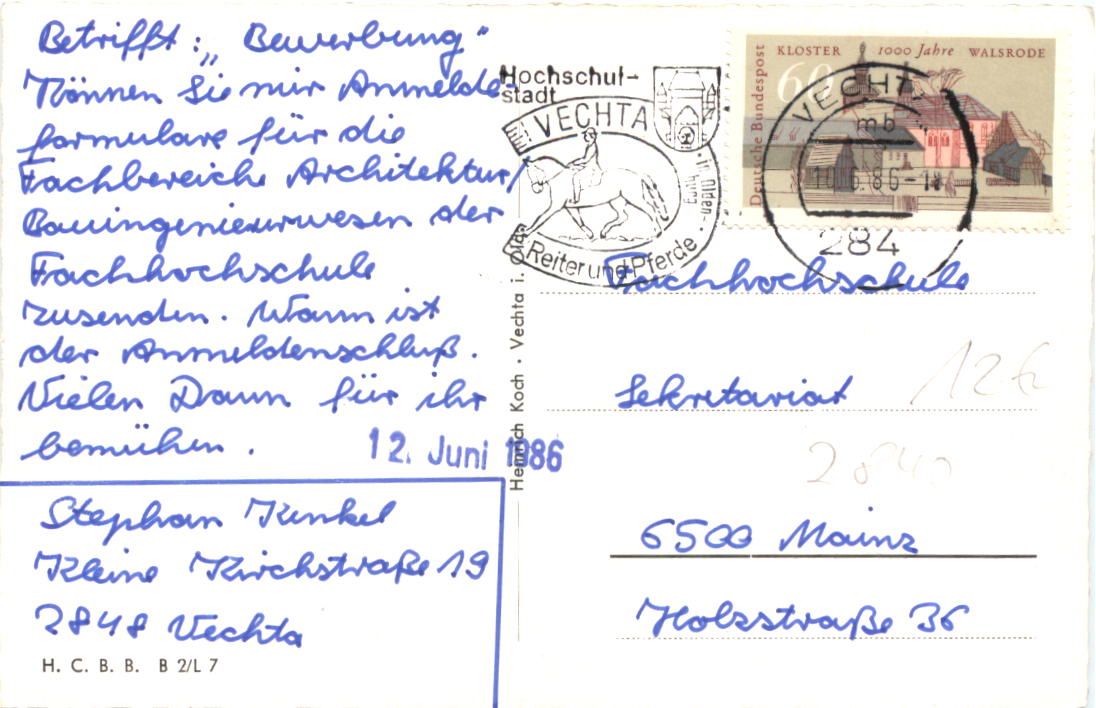 Betrifft: „Bewerbung"
Können Sie mir Anmelde-
formulare für die
Fachbereiche Architektur/
Bauingenieurwesen der
Fachhochschule
zusenden. Wann ist
der Anmeldenschluß.
Vielen Dann für ihr
bemühen.
12. Juni 1986
Stephan Kunkel
Kleine Kirchstraße 19
2848 Vechta
H. C. B. B. B 2/L 7
Heinrich Koch · Vechta i. Old.
Hochschul-
stadt
VECHTA
Reiter und Pferde
Deutsche Bundespost
KLOSTER 1000 Jahre WALSRODE
60
VECHTA
mb
10.6.86-
284
Fachhochschule
Sekretariat
6500 Mainz
Holzstraße 36
12
284